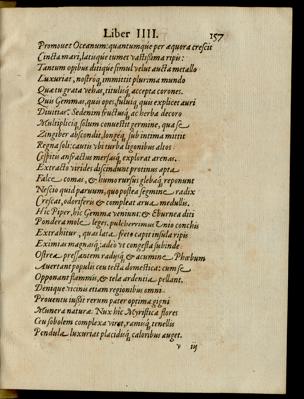 Liber IIII. 157
Promouet Oceanum: quantumque per æquora crescit
Cincta mari, latuique tumet vastissima ripis:
Tantum opibus ditique simul velut aucta metallo
Luxuriat, nostróq; immittit plurima mundo
Quæ tu grata vehas, titulisq; accepta corones.
Quis Gemmas, quis opes, fuluíq; quis explicet auri
Diuitias? Sedenim fructusq; ac herba decoro
Multiplicíq; solum conuestit germine, qua se
Zingiber abscondit, longéq; sub intima mittit
Regna soli: cautis vbi turba ligonibus altos
Cespitis anfractus mersasq; explorat arenas.
Extracto virides discindunt protinus apta
Falce comas, & humo rursus glebáq; reponunt
Nescio quid paruum, quo postea segmine radix
Crescat, odoriferu & compleat arua medullis.
Hic Piper, hic Gemmæ veniunt: & Eburnea diti
Pondera mole leges. pulcherrimus Vnio conchis
Extrahitur, quas lata freto capit insula ripis
Eximias magnasq; adeò vt congesta subinde
Ostrea pressantem radijsq; & acumine Phœbum
Auertant populis ceu tecta domestica: cum se
Opponant flammis, & tela ardentia pellant.
Denique vicinis etiam regionibus omni
Prouentu iussit rerum pater optima gigni
Munera naturæ: Nux hic Myristica flores
Ceu sobolem complexa viret, ramisq; tenellis
Pendula luxuriat placidisq; caloribus auget.
v iij